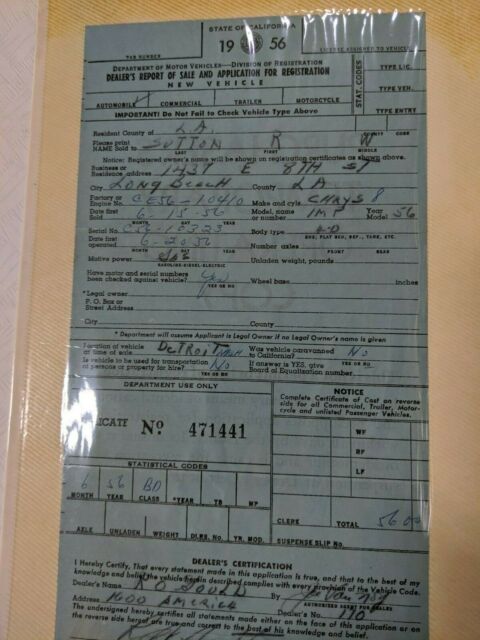 STATE OF CALIFORNIA
19 56
TAB NUMBER
LICENSE ASSIGNED TO VEHICLE
DEPARTMENT OF MOTOR VEHICLES—DIVISION OF REGISTRATION
DEALER'S REPORT OF SALE AND APPLICATION FOR REGISTRATION
NEW VEHICLE
STAT. CODES
TYPE LIC.
TYPE VEH.
TYPE ENTRY
AUTOMOBILE COMMERCIAL TRAILER MOTORCYCLE
IMPORTANT! Do Not Fail to Check Vehicle Type Above
Resident County of L.A. COUNTY CODE
Please print
NAME Sold to SUTTON R W
LAST FIRST MIDDLE
Notice: Registered owner's name will be shown on registration certificates as shown above.
Business or
Residence address 1437 E 8TH ST
City LONG BEACH County L A
Factory or
Engine No. CE56-10410 Make and cyls. CHRYS 8
Date first
Sold 6-15-56 Model, name
or number IMP Year
Model 56
MONTH DAY YEAR
Serial No. C56-10323 Body type 4D
ENG, FLAT BED, REF., TANK, ETC.
Date first
operated 6-20-56 Number axles
MONTH DAY YEAR FRONT REAR
Motive power GAS Unladen weight, pounds
GASOLINE-DIESEL-ELECTRIC
Have motor and serial numbers
been checked against vehicle? Yes Wheel base inches
YES OR NO
*Legal owner
P. O. Box or
Street Address
City County
* Department will assume Applicant is Legal Owner if no Legal Owner's name is given
Location of vehicle
at time of sale DETROIT MICH Was vehicle caravanned
to California? No
YES OR NO
Is vehicle to be used for transportation
of persons or property for hire? No If answer is YES, give
Board of Equalization number
YES OR NO
DEPARTMENT USE ONLY
NOTICE
Complete Certificate of Cost on reverse
side for all Commercial, Trailer, Motor-
cycle and unlisted Passenger Vehicles.
ICATE No 471441
WF
RF
LF
STATISTICAL CODES
6 56 BD
MONTH YEAR CLASS *YEAR TB MP
CLERK TOTAL 56 00
AXLE UNLADEN WEIGHT DLRS. NO. YR. MOD. SUSPENSE SLIP No.
DEALER'S CERTIFICATION
I Hereby Certify, That every statement made in this application is true, and that to the best of my
knowledge and belief the vehicle herein described complies with every provision of the Vehicle Code.
Dealer's Name R O GOULD By
AUTHORIZED AGENT FOR DEALER
Address 1600 AMERICAN Dealer's No. 110
The undersigned hereby certifies all statements made either on the face of this application or on
the reverse side hereof are true and correct to the best of his knowledge and belief.